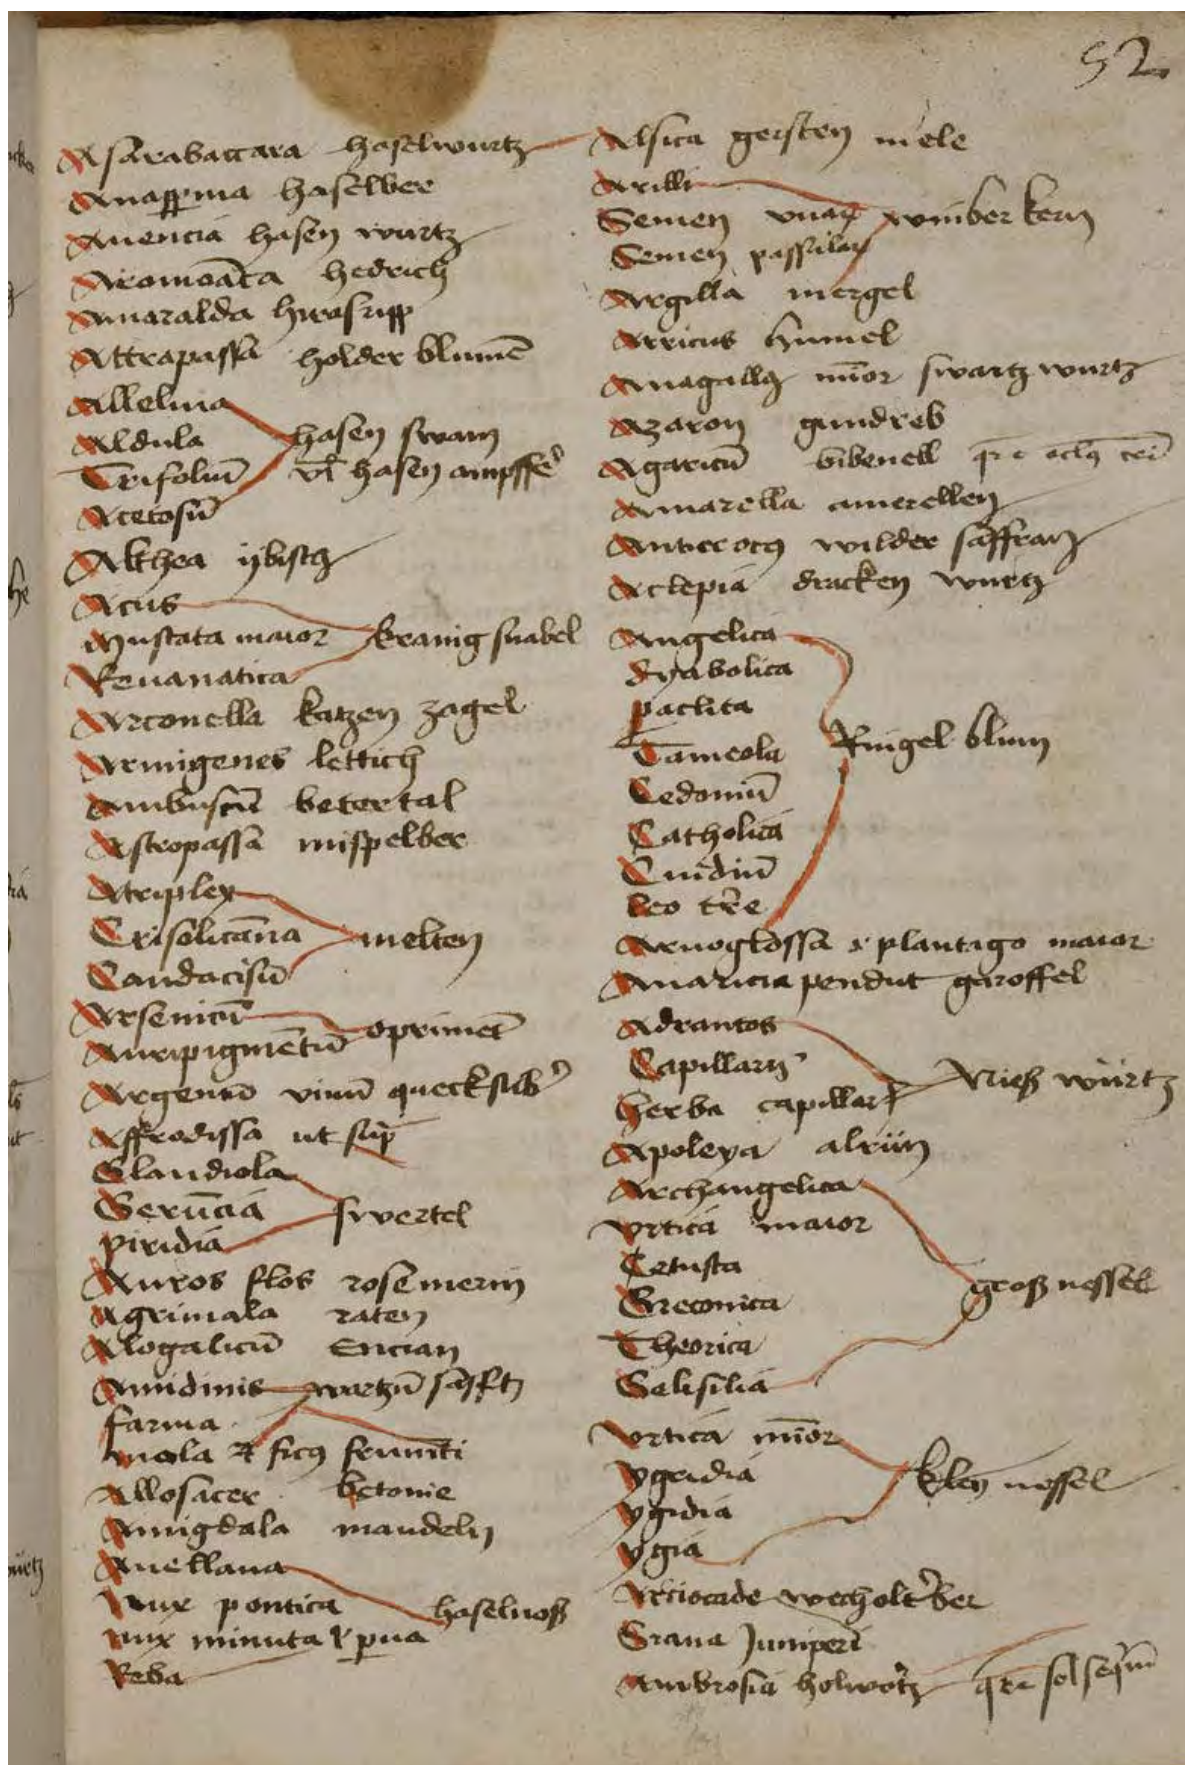 52
Asarabaccara haselwurtz
Anasperma haselber
Auencia hasen wurtz
Aromoāta hedrich
Amaralda
Attrapassa holder blumē
Alleluia
Aldula hasen swam
Trifoliū vl hasen ampffer
Acetosū
Althea ybisch
Acus
Muscata maior kranig snabel
Reuanatica
Arconella katzen zagel
Armigenes lettich
Ambuscū betertal
Astropassa mispelber
Atriplex
Crisolicāna melten
Candacisū
Arsenicū oprimēt
Auripigmētū
Argentū viuū quecksilber
Affrodissa ut sup
Glandiola
Gerūcia swertel
yiridia
Auros flos rosemerin
Agrimala raten
Alogalicū Encian
Amidinis
farina
mola ficus frumēti
Allosacer betonie
Amigdala mandeln
Auellana
Nux pontica haselnoß
nux minuta
Reba
Alsica gersten mele
Arilli
Semen vuaꝝ winber kern
Semen passulaꝝ
Argilla mergel
Arricus humel
Anagallꝫ mior swartz wurtz
Azaron gundreb
Agaricū bibenell
Amarella amerellen
Anticrocꝰ wilder saffran
Aclepia dracken wurtz
Angelica
dyabolica
paclita
Tameola Ringel blum
Cedomū
Catholica
Cindiū
leo tre
Arnoglossa plantago maior
Amaricia pendut garoffel
Adrantos
Capillarū Nieß würtz
herba capillar
Apoleya alrün
Archangelica
vrtica maior
Cetusta
Greconica groß nessel
Theorica
Gelisilia
vrtica mīor
ygridia kley nessel
ygidia
ygia
Arciocade wecholter ber
Grana Juniperi
Ambrosia holwortz